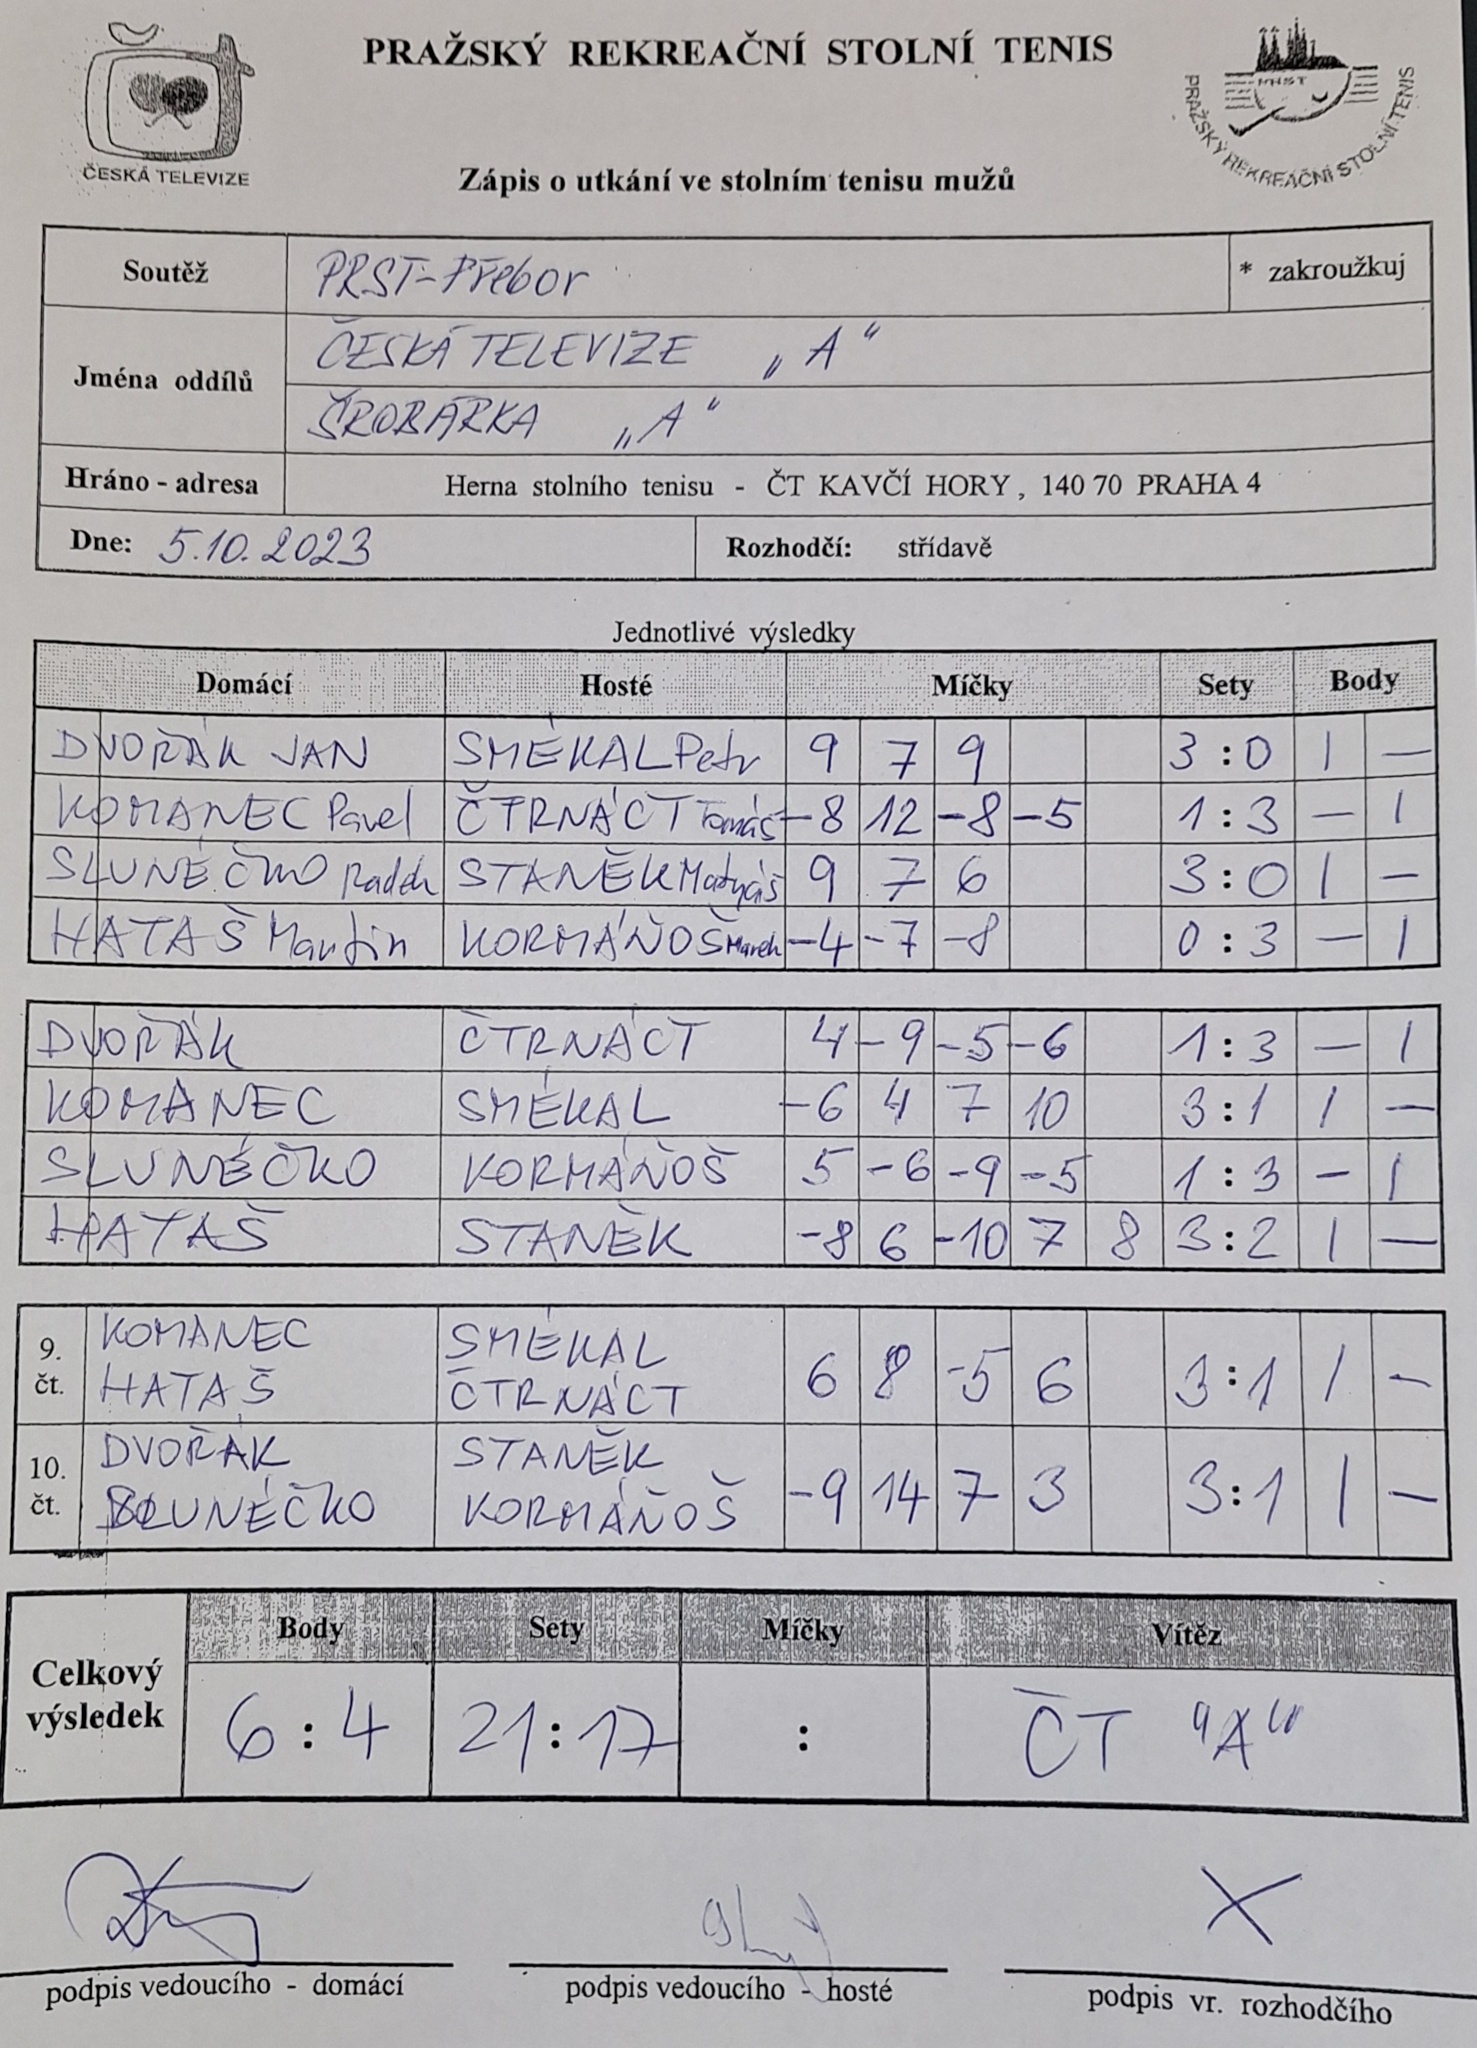 PRAŽSKÝ REKREAČNÍ STOLNÍ TENIS
ČESKÁ TELEVIZE
PRST
PRAŽSKÝ REKREAČNÍ STOLNÍ TENIS
Zápis o utkání ve stolním tenisu mužů
Soutěž PRST-Přebor * zakroužkuj
Jména oddílů
ČESKÁ TELEVIZE „A“
ŠROBÁRKA „A“
Hráno - adresa Herna stolního tenisu - ČT KAVČÍ HORY, 140 70 PRAHA 4
Dne: 5.10.2023 Rozhodčí: střídavě
Jednotlivé výsledky
Domácí Hosté Míčky Sety Body
DVOŘÁK JAN SMÉKAL Petr 9 7 9 3:0 1 —
KOMANEC Pavel ČTRNÁCT Tomáš -8 12 -8 -5 1:3 — 1
SLUNÉČKO Radek STANĚK Matyáš 9 7 6 3:0 1 —
HATAŠ Martin KORMÁŇOŠ Marek -4 -7 -8 0:3 — 1
DVOŘÁK ČTRNÁCT 4 -9 -5 -6 1:3 — 1
KOMANEC SMÉKAL -6 4 7 10 3:1 1 —
SLUNÉČKO KORMÁŇOŠ 5 -6 -9 -5 1:3 — 1
HATAŠ STANĚK -8 6 -10 7 8 3:2 1 —
9. čt. KOMANEC SMÉKAL 6 8 -5 6 3:1 1 —
HATAŠ ČTRNÁCT
10. čt. DVOŘÁK STANĚK -9 14 7 3 3:1 1 —
SLUNÉČKO KORMÁŇOŠ
Body Sety Míčky Vítěz
Celkový výsledek 6:4 21:17 : ČT "A"
podpis vedoucího - domácí podpis vedoucího - hosté podpis vr. rozhodčího